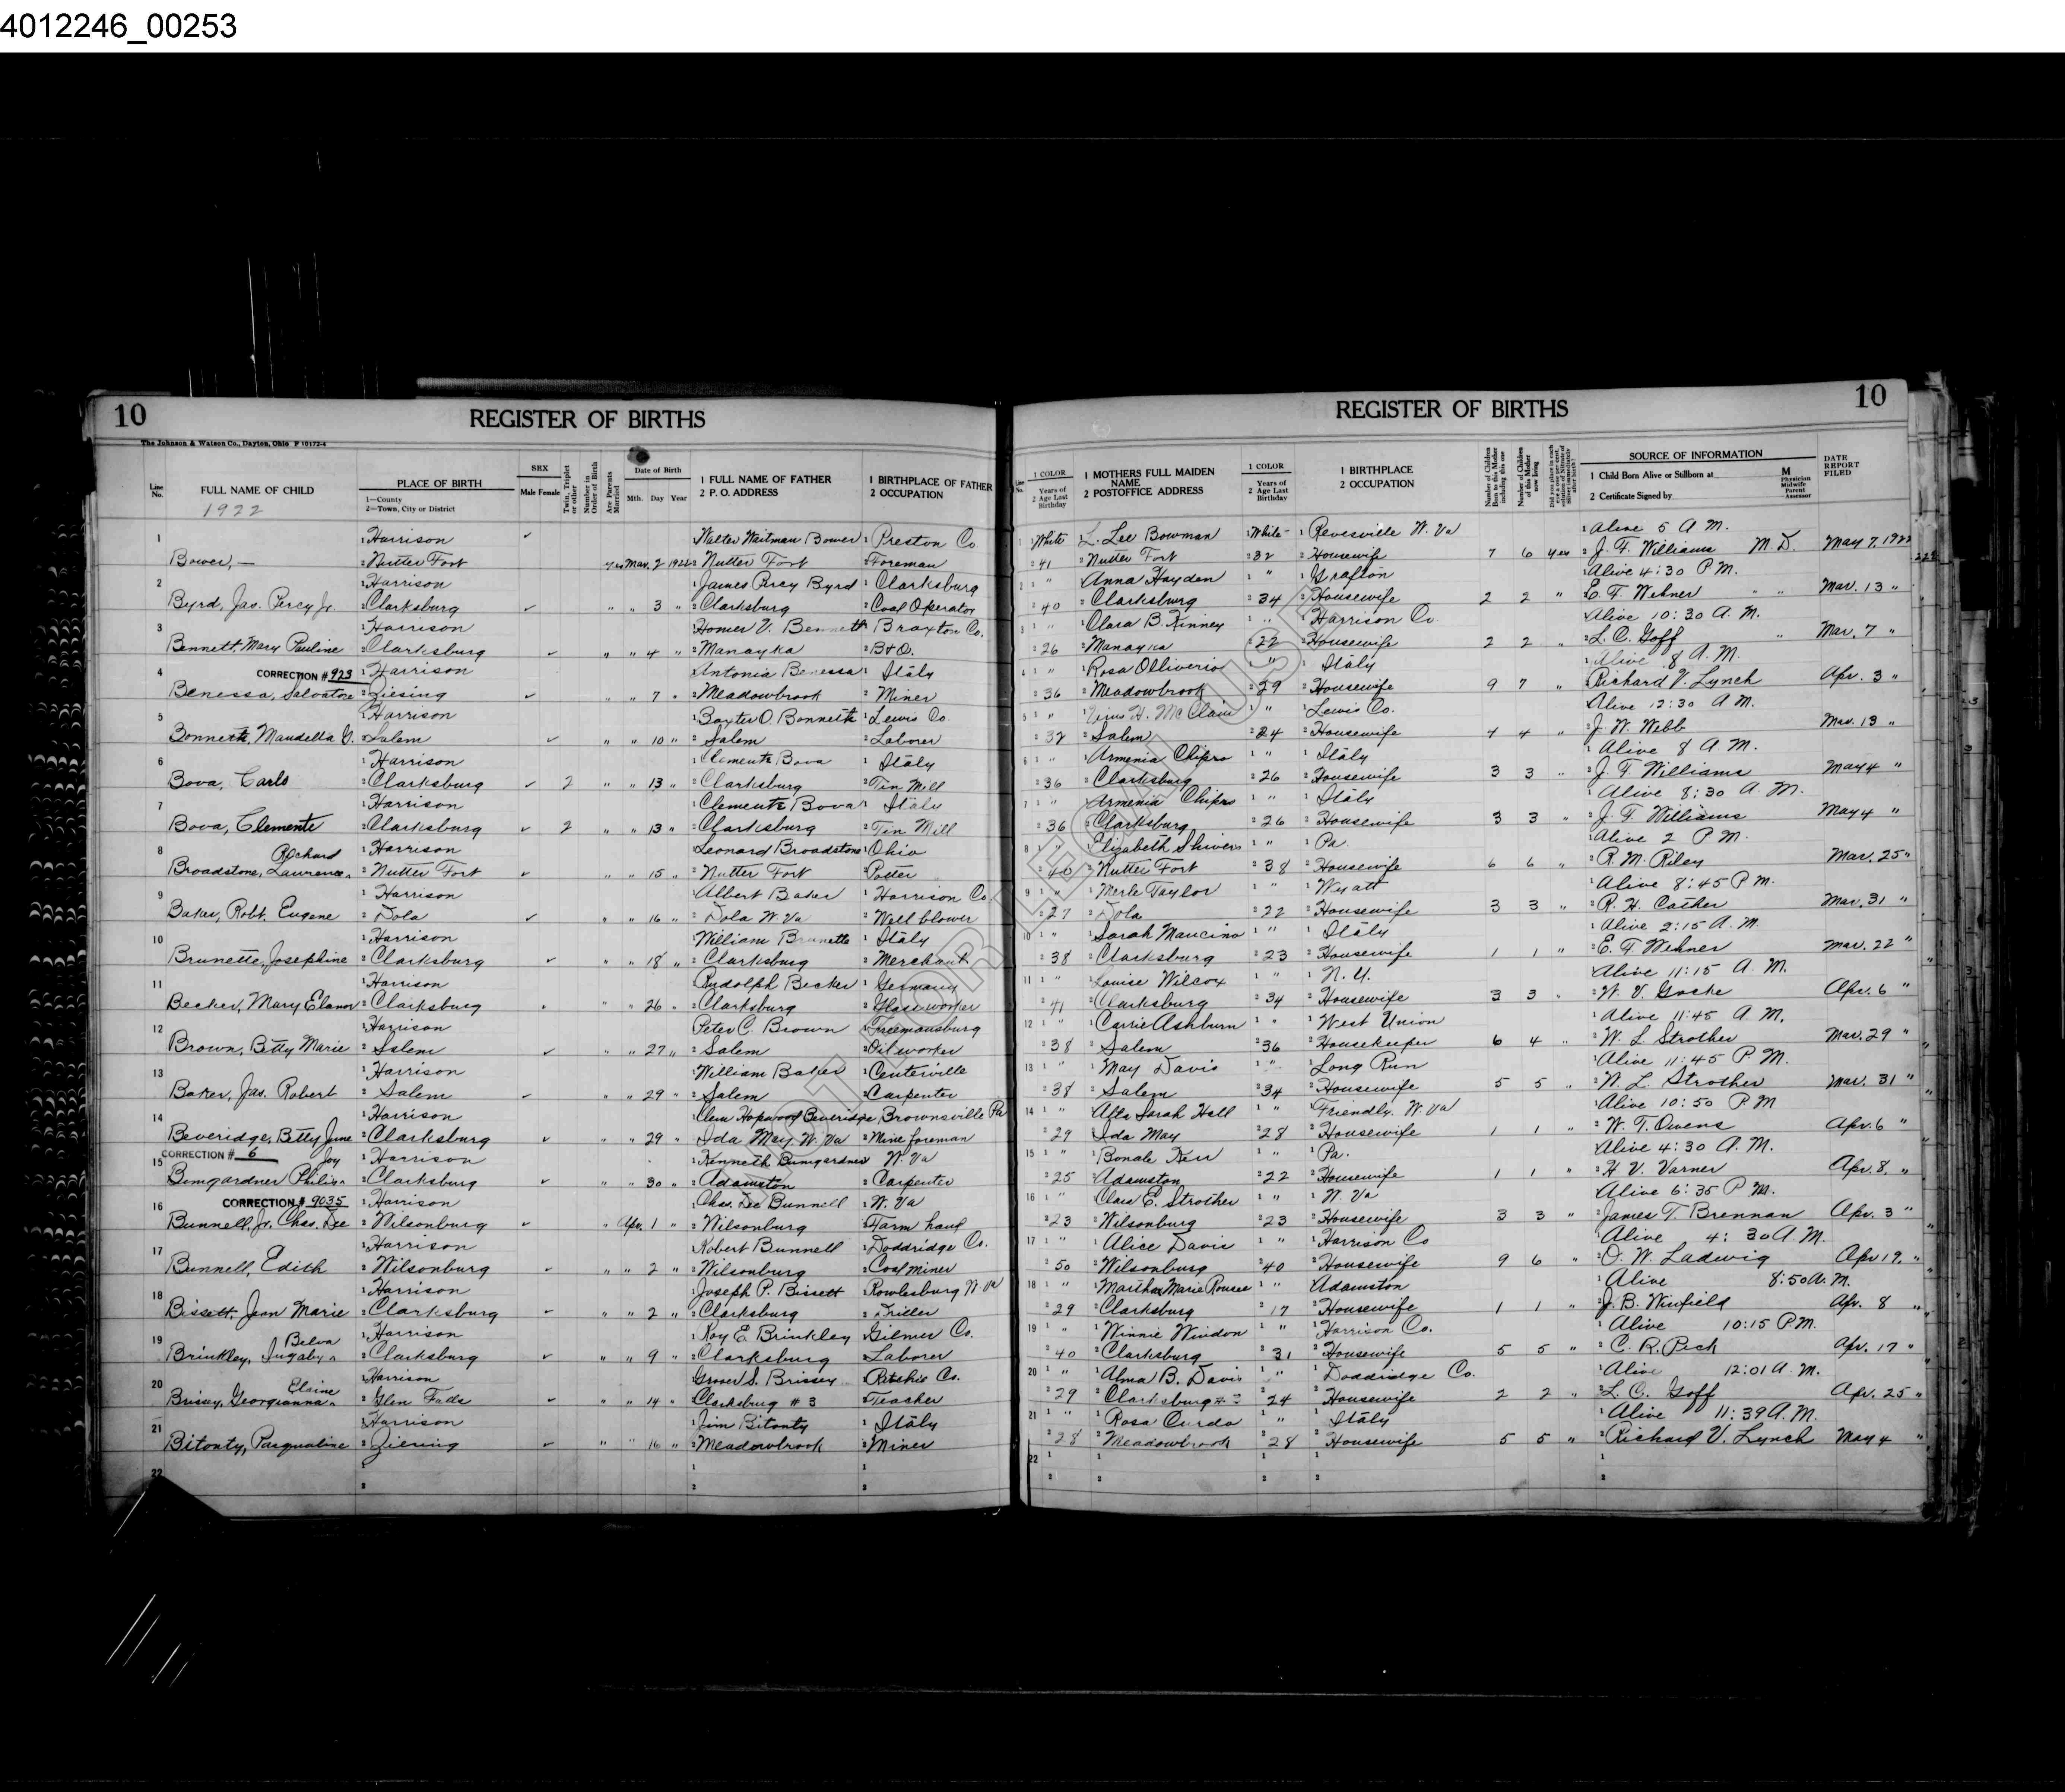 4012246_00253
10
REGISTER OF BIRTHS
The Johnson & Watson Co., Dayton, Ohio F 10172-4
Line No.
FULL NAME OF CHILD
1922
PLACE OF BIRTH
1—County
2—Town, City or District
SEX
Male Female
Twin, Triplet or other
Number in Order of Birth
Are Parents Married
Date of Birth
Mth. Day Year
1 FULL NAME OF FATHER
2 P. O. ADDRESS
1 BIRTHPLACE OF FATHER
2 OCCUPATION
1 1 Harrison ✓ 1 Walter Waitman Bower 1 Preston Co
Bower, — 2 Nutter Fort yes Mar. 2 1922 2 Nutter Fort 2 Foreman
2 1 Harrison 1 James Percy Byrd 1 Clarksburg
Byrd, Jas. Percy Jr. 2 Clarksburg ✓ " " 3 " 2 Clarksburg 2 Coal Operator
3 1 Harrison Homer V. Bennett Braxton Co.
Bennett, Mary Pauline 2 Clarksburg ✓ " " 4 " 2 Manayka 2 B+O.
4 CORRECTION # 923 1 Harrison Antonia Benessa 1 Italy
Benessa, Salvatore 2 Ziesing ✓ " " 7 " 2 Meadowbrook 2 Miner
5 1 Harrison 1 Baxter O Bonnett 1 Lewis Co.
Bonnett, Maudella G. 2 Salem ✓ " " 10 " 2 Salem 2 Laborer
6 1 Harrison 1 Clemente Bova 1 Italy
Bova, Carlo 2 Clarksburg ✓ 2 " " 13 " 2 Clarksburg 2 Tin Mill
7 1 Harrison 1 Clemente Bova 1 Italy
Bova, Clemente 2 Clarksburg ✓ 2 " " 13 " 2 Clarksburg 2 Tin Mill
8 Richard 1 Harrison Leonard Broadstone 1 Ohio
Broadstone, Lawrence 2 Nutter Fort ✓ " " 15 " 2 Nutter Fort 2 Potter
9 1 Harrison 1 Albert Baker 1 Harrison Co.
Baker, Robt. Eugene 2 Dola ✓ " " 16 " 2 Dola W. Va 2 Well blower
10 1 Harrison William Brunette 1 Italy
Brunette, Josephine 2 Clarksburg ✓ " " 18 " 2 Clarksburg 2 Merchant
11 1 Harrison Rudolph Becker 1 Germany
Becker, Mary Elanor 2 Clarksburg " " 26 " 2 Clarksburg 2 Glassworker
12 1 Harrison Peter C. Brown 1 Freemansburg
Brown, Betty Marie 2 Salem ✓ " " 27 " 2 Salem 2 Oil worker
13 1 Harrison 1 William Baker 1 Centerville
Baker, Jas. Robert 2 Salem ✓ " " 29 " 2 Salem 2 Carpenter
14 1 Harrison Clem Hopwood Beveridge, Brownsville Pa
Beveridge, Betty June 2 Clarksburg ✓ " " 29 " 2 Ida May W. Va 2 Mine foreman
CORRECTION # 6
15 Joy 1 Harrison 1 Kenneth Bumgardner W. Va
Bumgardner 2 Clarksburg ✓ " " 30 " 2 Adamston 2 Carpenter
16 CORRECTION # 9035 1 Harrison 1 Chas. Lee Bunnell 1 W. Va
Bunnell, Jr. Chas. Lee 2 Wilsonburg ✓ " Apr. 1 " 2 Wilsonburg 2 Farm hand
17 1 Harrison 1 Robert Bunnell 1 Doddridge Co.
Bunnell, Edith 2 Wilsonburg ✓ " " 2 " 2 Wilsonburg 2 Coal miner
18 1 Harrison 1 Joseph P. Bissett 1 Rowlesburg W Va
Bissett, Jean Marie 2 Clarksburg ✓ " " 2 " 2 Clarksburg 2 Driller
19 Belva 1 Harrison 1 Roy E Brinkley 1 Gilmer Co.
Brinkley, 2 Clarksburg ✓ " " 9 " 2 Clarksburg 2 Laborer
20 Elaine 1 Harrison Grover S. Brissey Ritchie Co.
Brissey, Georgianna 2 Glen Falls ✓ " " 14 " 2 Clarksburg # 3 2 Teacher
21 1 Harrison 1 Jim Bitonty 1 Italy
Bitonty, Pasqualine 2 Ziesing ✓ " " 16 " 2 Meadowbrook 2 Miner
22 1 1
2 2 2
REGISTER OF BIRTHS
10
Line No.
1 COLOR
2 Years of Age Last Birthday
1 MOTHERS FULL MAIDEN NAME
2 POSTOFFICE ADDRESS
1 COLOR
2 Years of Age Last Birthday
1 BIRTHPLACE
2 OCCUPATION
Number of Children Born to this Mother including this one
Number of Children of this Mother now living
SOURCE OF INFORMATION
1 Child Born Alive or Stillborn at M
2 Certificate Signed by
Physician Midwife Parent Assessor
DATE REPORT FILED
1 1 White L. Lee Bowman 1 White 1 Revesville W. Va 1 Alive 5 A M.
2 41 2 Nutter Fort 2 32 2 Housewife 7 6 yes 2 J. F. Williams M. D. May 7, 1922
2 1 " Anna Hayden " 1 Grafton 1 Alive 4:30 P M.
2 40 2 Clarksburg 2 34 2 Housewife 2 2 " 2 E. F. Wehner " " Mar. 13 "
3 1 " Clara B. Kinney " 1 Harrison Co. Alive 10:30 A. M.
2 26 2 Manayka 2 22 2 Housewife 2 2 " 2 L. C. Goff " Mar. 7 "
4 1 " Rosa Olliverio 1 " 1 Italy Alive 8 A M.
2 36 2 Meadowbrook 2 29 2 Housewife 9 7 " 2 Richard V. Lynch Apr. 3 "
5 1 " H. McClain 1 " 1 Lewis Co. Alive 12:30 A M.
2 32 2 Salem 2 24 2 Housewife 4 4 " 2 J. W. Webb Mar. 13 "
6 1 " Armenia Chipro 1 " 1 Italy 1 Alive 8 A M.
2 36 2 Clarksburg 2 26 2 Housewife 3 3 " 2 J. F. Williams May 4 "
7 1 " Armenia Chipro 1 " 1 Italy 1 Alive 8:30 A M.
2 36 2 Clarksburg 2 26 2 Housewife 3 3 " 2 J. F. Williams May 4 "
8 1 " Elizabeth Shivers 1 " 1 Pa. 1 Alive 2 P M.
2 40 2 Nutter Fort 2 38 2 Housewife 6 6 " 2 R. M. Riley Mar. 25 "
9 1 " Merle Taylor 1 " 1 Wyatt 1 Alive 8:45 P M.
2 27 2 Dola 2 22 2 Housewife 3 3 " 2 R. H. Cather Mar. 31 "
10 1 " Sarah Mancino 1 " 1 Italy 1 Alive 2:15 A. M.
2 38 2 Clarksburg 2 23 2 Housewife 1 1 " 2 E. F. Wehner Mar. 22 "
11 1 " Louise Wilcox 1 " 1 N. Y. Alive 11:15 A. M.
2 41 2 Clarksburg 2 34 2 Housewife 3 3 " 2 W. V. Gocke Apr. 6 "
12 1 " Carrie Ashburn 1 " 1 West Union 1 Alive 11:45 A M.
2 38 2 Salem 2 36 2 Housekeeper 6 4 " 2 W. L. Strother Mar. 29 "
13 1 " May Davis 1 " Long Run 1 Alive 11:45 P. M.
2 38 2 Salem 2 34 2 Housewife 5 5 " 2 W. L. Strother Mar. 31 "
14 1 " Sarah Hall 1 " Friendly. W. Va 1 Alive 10:50 P M
2 29 2 Ida May 2 28 2 Housewife 1 1 " 2 W. T. Owens Apr. 6 "
15 1 " 1 " 1 Pa. Alive 4:30 A. M.
2 25 2 Adamston 2 22 2 Housewife 1 1 " 2 H V. Varner Apr. 8, "
16 1 " E. Strother 1 " 1 W. Va Alive 6:35 P M.
2 23 2 Wilsonburg 2 23 2 Housewife 3 3 " 2 James T. Brennan Apr. 3 "
17 1 " Alice Davis 1 " 1 Harrison Co 1 Alive 4:30 A M.
2 50 2 Wilsonburg 2 40 2 Housewife 9 6 " 2 O. W. Ladwig Apr 19, "
18 1 " Martha Marie Rouse 1 " Adamston 1 Alive 8:50 A. M.
2 29 2 Clarksburg 2 17 2 Housewife 1 1 " 2 J. B. Winfield Apr. 8 "
19 1 " Winnie Windon 1 " 1 Harrison Co. 1 Alive 10:15 P M.
2 40 2 Clarksburg 2 31 2 Housewife 5 5 " 2 C. R. Peck Apr. 17 "
20 1 " Alma B. Davis " 1 Doddridge Co. 1 Alive 12:01 A. M.
2 29 2 Clarksburg # 3 2 24 2 Housewife 2 2 " 2 L. C. Goff Apr. 25 "
21 1 " Rosa Curdo 1 " 1 Italy 1 Alive 11:39 A. M.
2 28 2 Meadowbrook 2 28 2 Housewife 5 5 " 2 Richard V. Lynch May 4 "
22 1 1 1 1 1
2 2 2 2 2